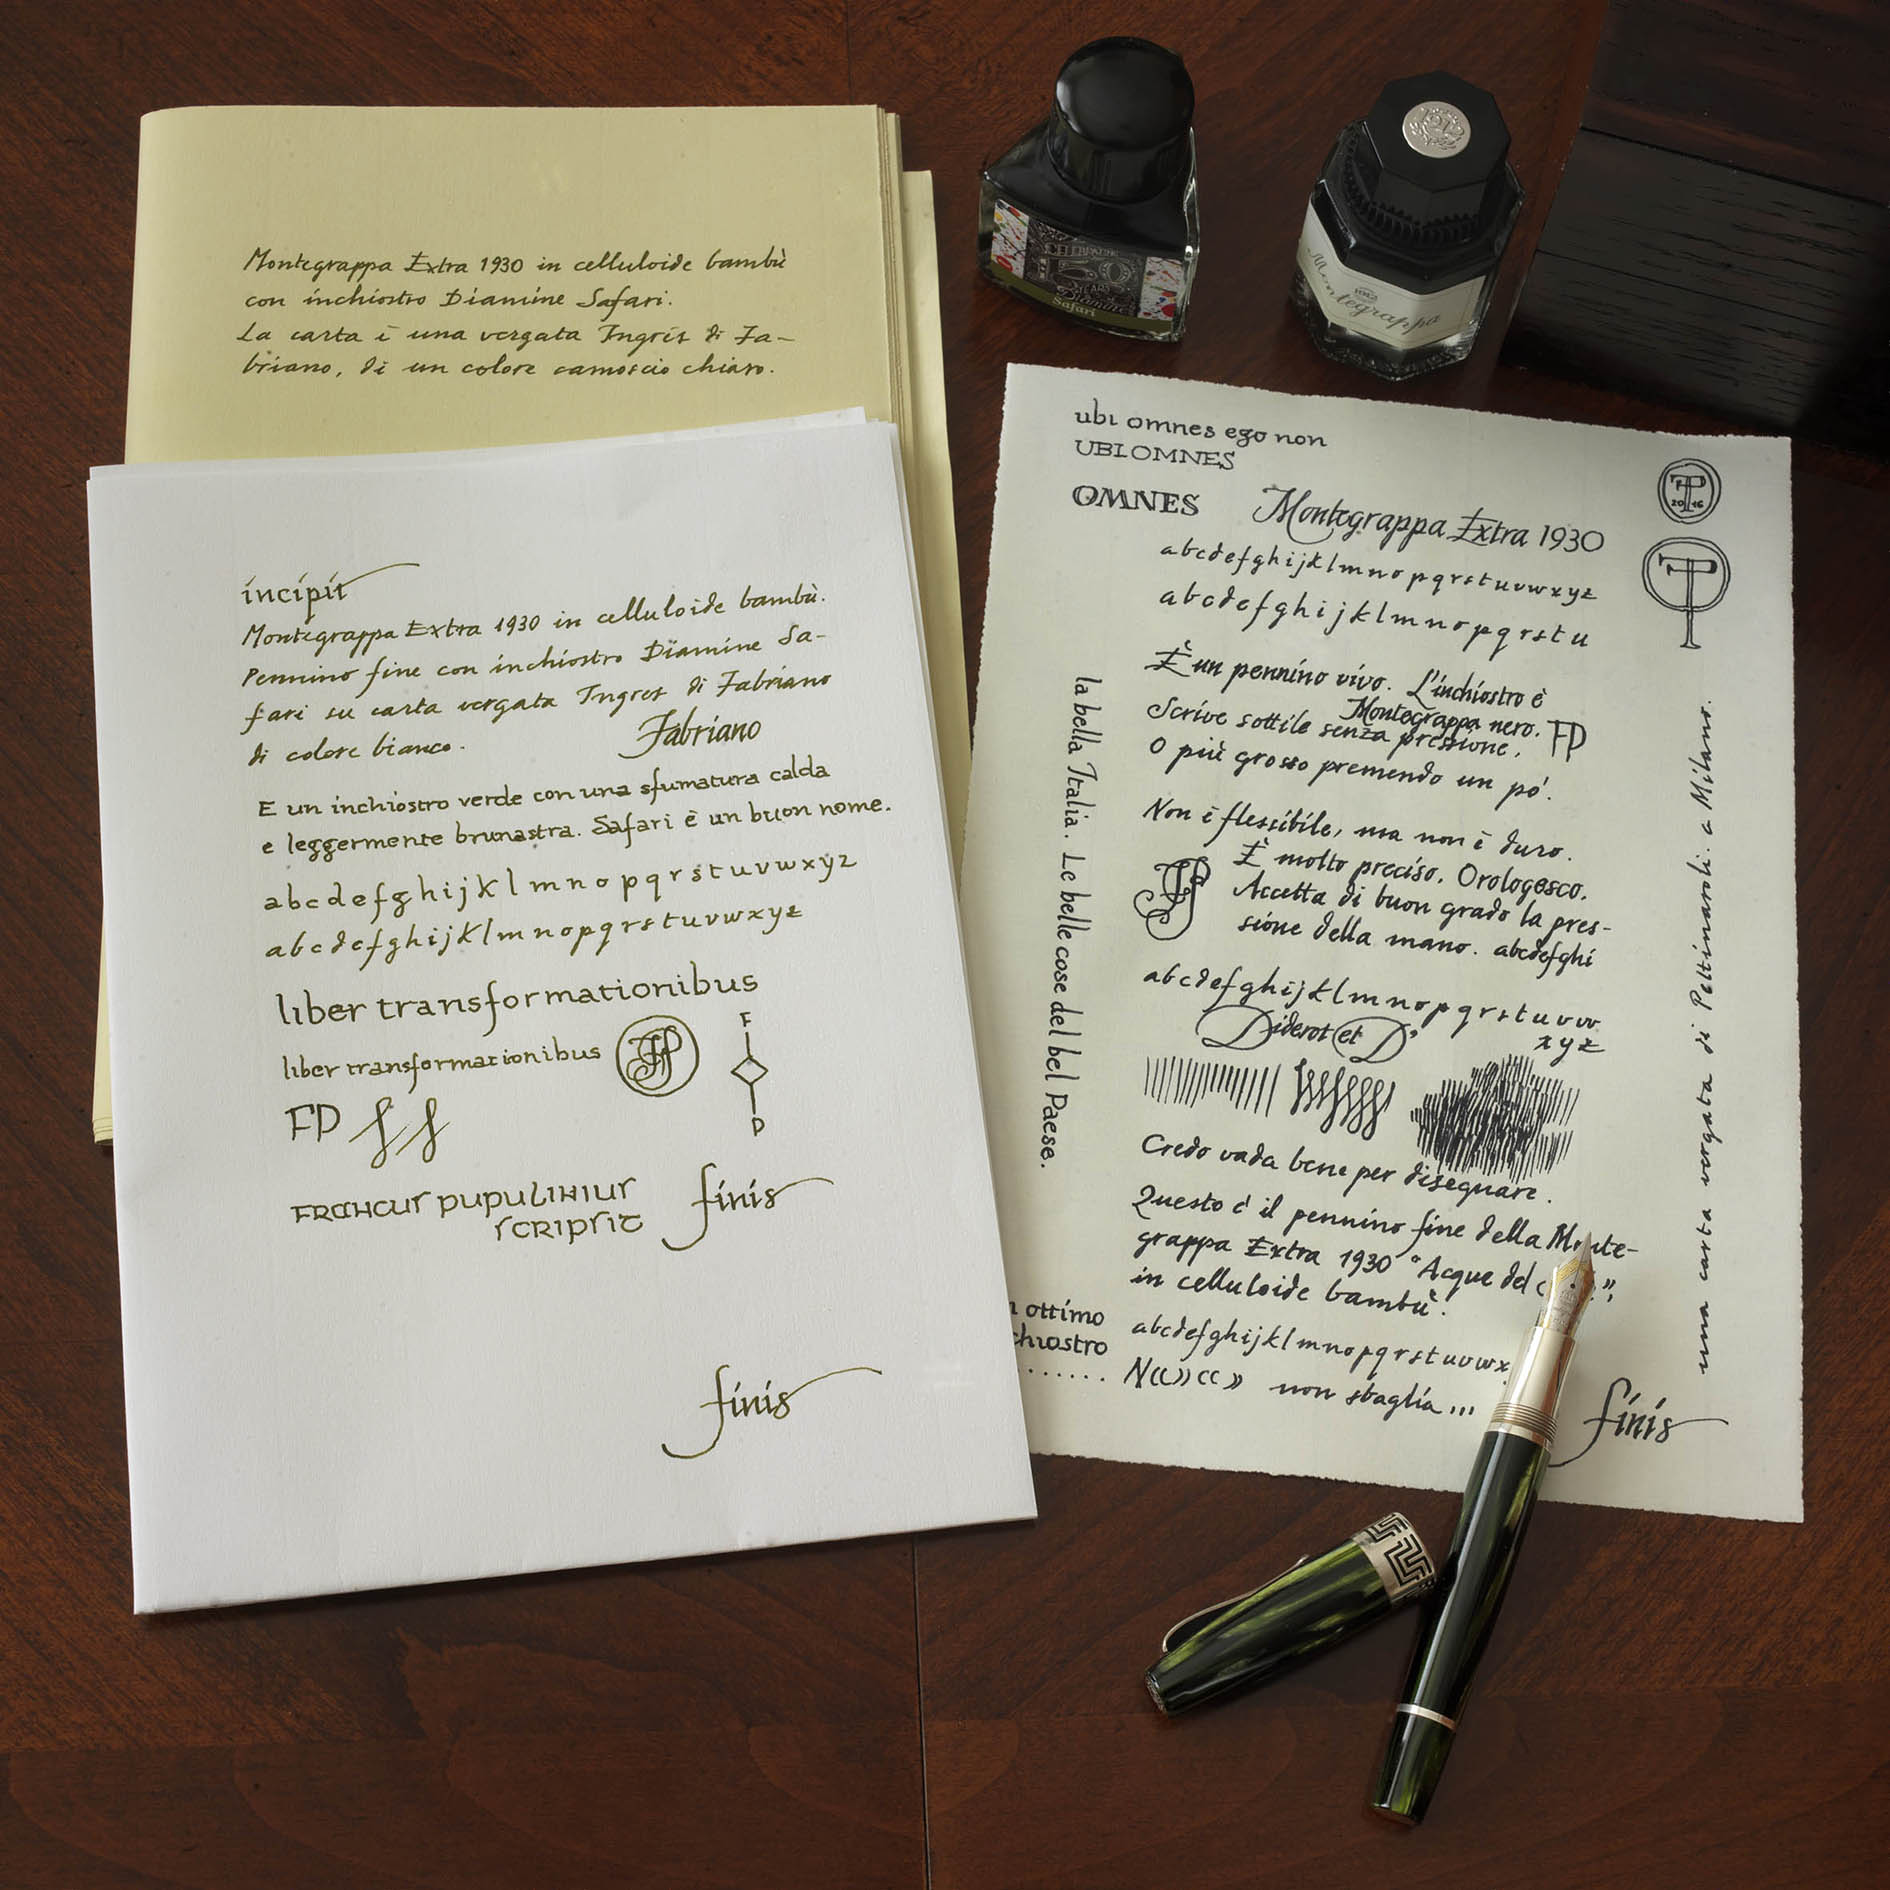 Montegrappa Extra 1930 in celluloide bambù
con inchiostro Diamine Safari.
La carta è una vergata Ingres di Fa-
briano, di un colore camoscio chiaro.
incipit
Montegrappa Extra 1930 in celluloide bambù.
Pennino fine con inchiostro Diamine Sa-
fari su carta vergata Ingres di Fabriano
di colore bianco.
Fabriano
E un inchiostro verde con una sfumatura calda
e leggermente brunastra. Safari è un buon nome.
abcdefghijklmnopqrstuvwxyz
abcdefghijklmnopqrstuvwxyz
liber transformationibus
liber transformationibus
FP
F
P
FP
FRANCUS PUPULINIUS
SCRIPSIT
finis
finis
CELEBRATING
150
YEARS
Diamine
Safari
1912
1912
Montegrappa
ubi omnes ego non
UBI OMNES
OMNES
Montegrappa Extra 1930
TP
2016
abcdefghijklmnopqrstuvwxyz
abcdefghijklmnopqrstu
È un pennino vivo. L'inchiostro è
Montegrappa nero.
Scrive sottile senza pressione.
FP
O più grosso premendo un pò.
Non è flessibile, ma non è duro.
È molto preciso. Orologesco.
Accetta di buon grado la pres-
sione della mano. abcdefghi
abcdefghijklmnopqrstuvw
xyz
Diderot et D'
Credo vada bene per disegnare.
Questo è il pennino fine della Monte-
grappa Extra 1930 "Acque del
in celluloide bambù.
abcdefghijklmnopqrstuvwx
N(())(()) non sbaglia...
finis
la bella Italia. Le belle cose del bel Paese.
una carta vergata di Pettinaroli. a Milano.
ottimo
chiostro
......